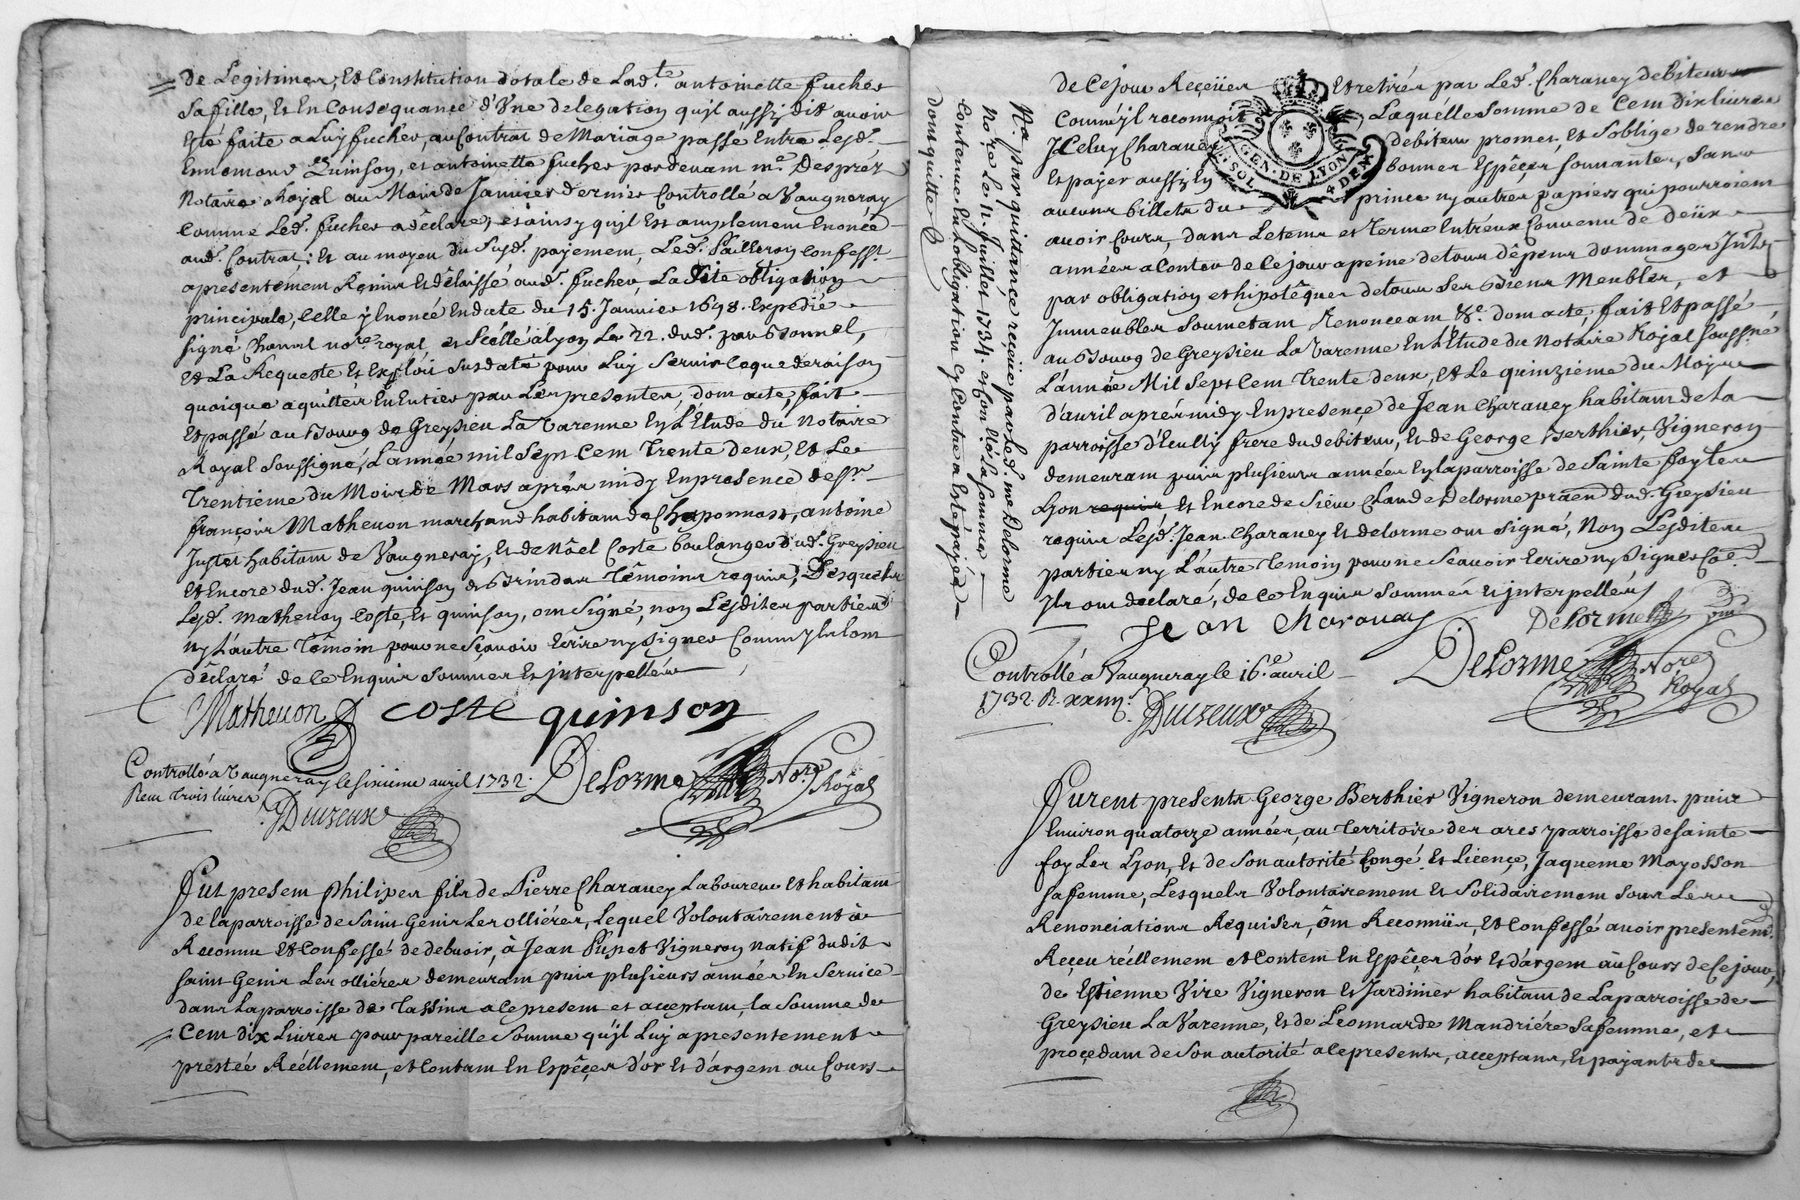 de Legitimer, Et Constitution dotale de Lad.te antoinette fucher
Sa fille, Et En Consequance d'Une delegation qu'jl aussy dit avoir
Eté faite a Luy fucher, au Contrat de Mariage passé Entre Lesd.
Ennemond Quinson, et antoinette fucher pardevant m.e Desprez
Notaire Royal au Mois de Janvier dernier Controllé a Vaugneray
Comme Led. fucher a déclaré, et ainsy qu'jl Est amplement Enoncé
aud. Contrat; Et au moyen du Susd. payement, Led. Pailleron Confesst.
a presentement Remis Et délaissé aud. fucher, La Dite obligation
principale, Celle y Enoncé En date du 15. Janvier 1698. Expedié
signé Bonnel no.re royal, et Scéllé a Lyon Le 22. dud. par Bonnel,
Et La Requeste Et Exploit Susdaté pour Luy Servir Ce que de raison
quoique aquittés En Entier par Les presentes, dont acte, fait
Et passé au Bourg de Greysieu La Varenne En L'Étude du Notaire
Royal Soussigné, L'année mil Sept Cent Trente deux, Et Le
Trentieme du Mois de Mars aprés midy En presence de Sr.
françois Matheuon marchand habitant de Chaponnost, antoine
habitant de Vaugneray, Et de Nöel Coste boulanger dud. Greysieu
Et Encore dud. Jean quinson de Brindas Témoins requis, Desquels
Lesd. Matheuon, Coste, Et quinson, ont Signé, non Lesdites parties
ny L'autre Témoin pour ne Sçavoir Ecrire ny Signer Comm'jls l'ont
déclaré de Ce Enquis Sommés Et jnterpellés
Matheuon Coste quinson
Controllé a Vaugneray le sixieme avril 1732.
Reçu trois livres
DeLorme No.re Royal
Fut present Philipes fils de Pierre Charavey Laboureur Et habitant
de La parroisse de Saint Genis Les ollières, Lequel Volontairement à
Reconnu Et Confessé de debvoir, à Jean Vigneron natif dudit
Saint Genis Les ollières demeurant puis plusieurs années En Service
dans La parroisse de Tassins a Ce present et acceptant, la Somme de
Cent dix Livres pour pareille Somme qu'jl Luy a presentement
prestée Réellement, et Contant En Espéces d'or Et d'argent au Cours
Na. par quittance reçeüe par Led. me Delorme
No.re Le 11. Juillet 1734. et Con.llé La Somme
Contenue En L'obligation Cy Contre a Esté payée
dont quitte
de Ce jour Reçeües Et retirés par Led. Charavey debiteur
Comm'jl reconnoit Laquelle Somme de Cent dix livres
JCeluy Charavey debiteur promet, Et S'oblige de rendre
Et payer aussy En bonnes Espéces sonnantes, sans
aucuns billets du GEN. DE LYON prince ny autres papiers qui pourroient
avoir Cours, dans Le tems et Terme Entr'eux Convenu de deüx
années a Conter de Ce jour a peine de tous dépens dommages
par obligation et hipotéques de tous Ses Biens Meubles, et
Jmmeubles Soumetant Renonceant &c. dont acte fait Et passé
au Bourg de Greysieu La Varenne En L'Etude du Notaire Royal Soussné.
L'année Mil Sept Cent Trente deux, Et Le quinzieme du Mois
d'avril aprés midy En presence de Jean Charavey habitant de La
parroisse d'Eculli frere du debiteur, Et de George Berthier, Vigneron
demeurant puis plusieurs années En la parroisse de Sainte foy les
Lyon requis et Encore de Sieur Claude Delorme dud. Greysieu
requis Lesd. Jean Charavey Et delorme ont Signé, Non Lesdites
parties ny L'autre Temoin pour ne Scavoir Ecrire ny Signer
Jls ont declaré, de Ce Enquis Sommés Et jnterpellés
Jean Charavay Delorme
Controllé a Vaugneray le 16.e avril
1732.
DeLorme No.re Royal
Furent presents George Berthier Vigneron demeurant puis
Environ quatorze années, au Territoire des ares parroisse de Sainte
foy Les Lyon, Et de Son autorité Congé Et Licençe, Jaqueme Mayosson
Sa femme, Lesquels Volontairement Et Solidairement Sous Les
Renonciations Requises, ont Reconnüs, Et Confessé avoir presentemt.
Reçeu réellement et Contant En Espéçes d'or Et d'argent au Cours de Ce jour,
de Estienne Vire Vigneron Et Jardinier habitant de La parroisse de
Greysieu La Varenne, Et de Leonnarde Mandriére Sa femme, et
proçedant de Son autorité a Ce presents, acceptans, Et payants de